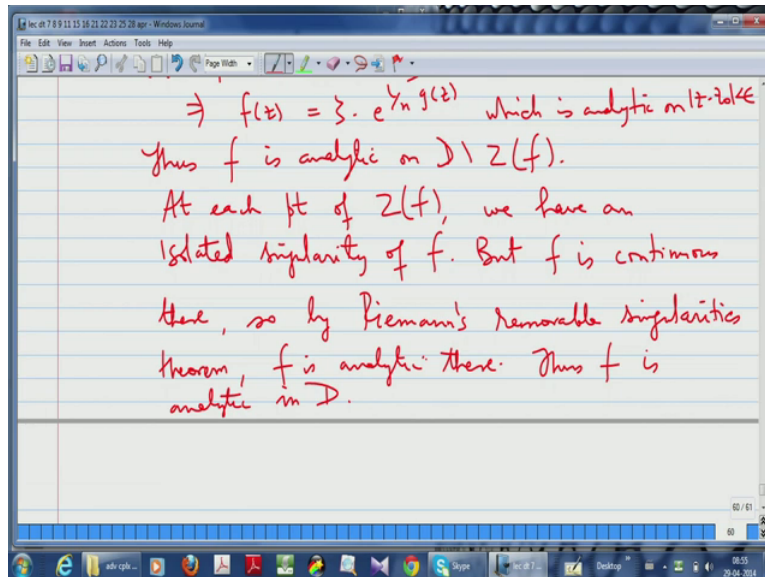 lec dt 7 8 9 11 15 16 21 22 23 25 28 apr - Windows Journal
File Edit View Insert Actions Tools Help
Page Width
⇒ f(z) = ξ. e^{1/n g(z)} which is analytic on |z-z₀|<ε
Thus f is analytic on D \ Z(f).
At each pt of Z(f), we have an
isolated singularity of f. But f is continuous
there, so by Riemann's removable singularities
theorem, f is analytic there. Thus f is
analytic in D.
60 / 61
60
adv cplx ...
Skype
lec dt 7 ...
Desktop
08:55
29-04-2014